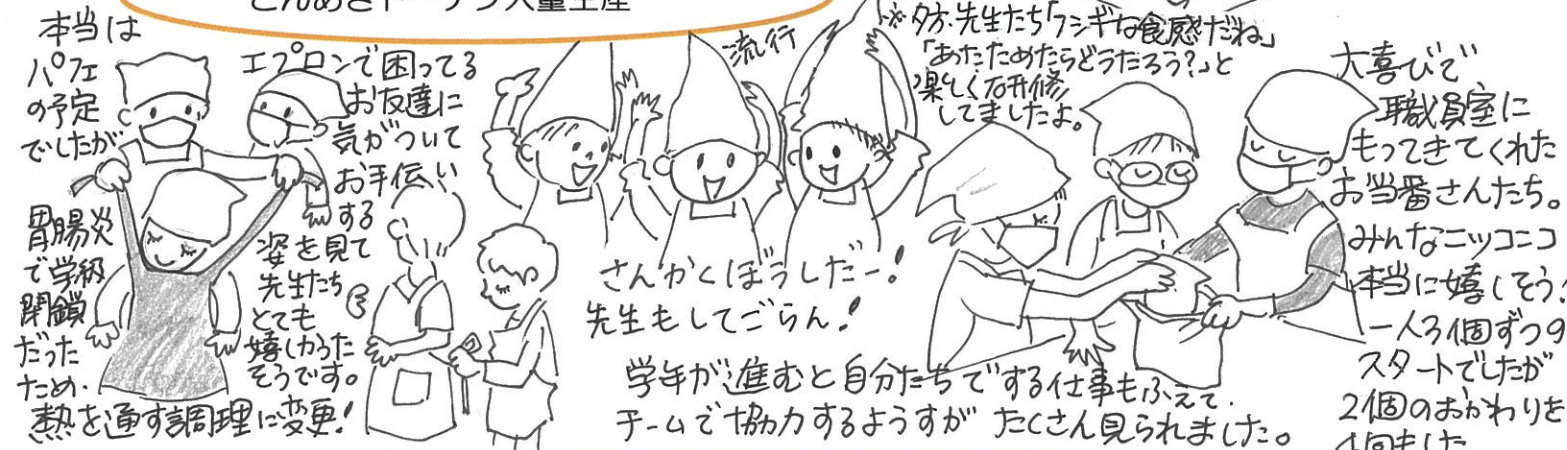 本当は
パフェ
の予定
でしたが
胃腸炎
で学級
閉鎖
だった
ため.
熱を通す調理に変更!
エプロンで困ってる
お友達に
気がついて
お手伝い
する
姿を見て
先生たち
とても
嬉しかった
そうです。
流行
さんかくぼうしだー!
先生もしてごらん!
※夕方、先生たち「フシギな食感だね」
「あたためたらどうだろう?」と
楽しく研修
してましたよ。
学年が進むと自分たちでする仕事もふえて.
チームで協力するようすが たくさん見られました。
大喜びで
職員室に
もってきてくれた
お当番さんたち。
みんなニッコニコ
本当に嬉しそう!
一人3個ずつの
スタートでしたが
2個のおかわりを